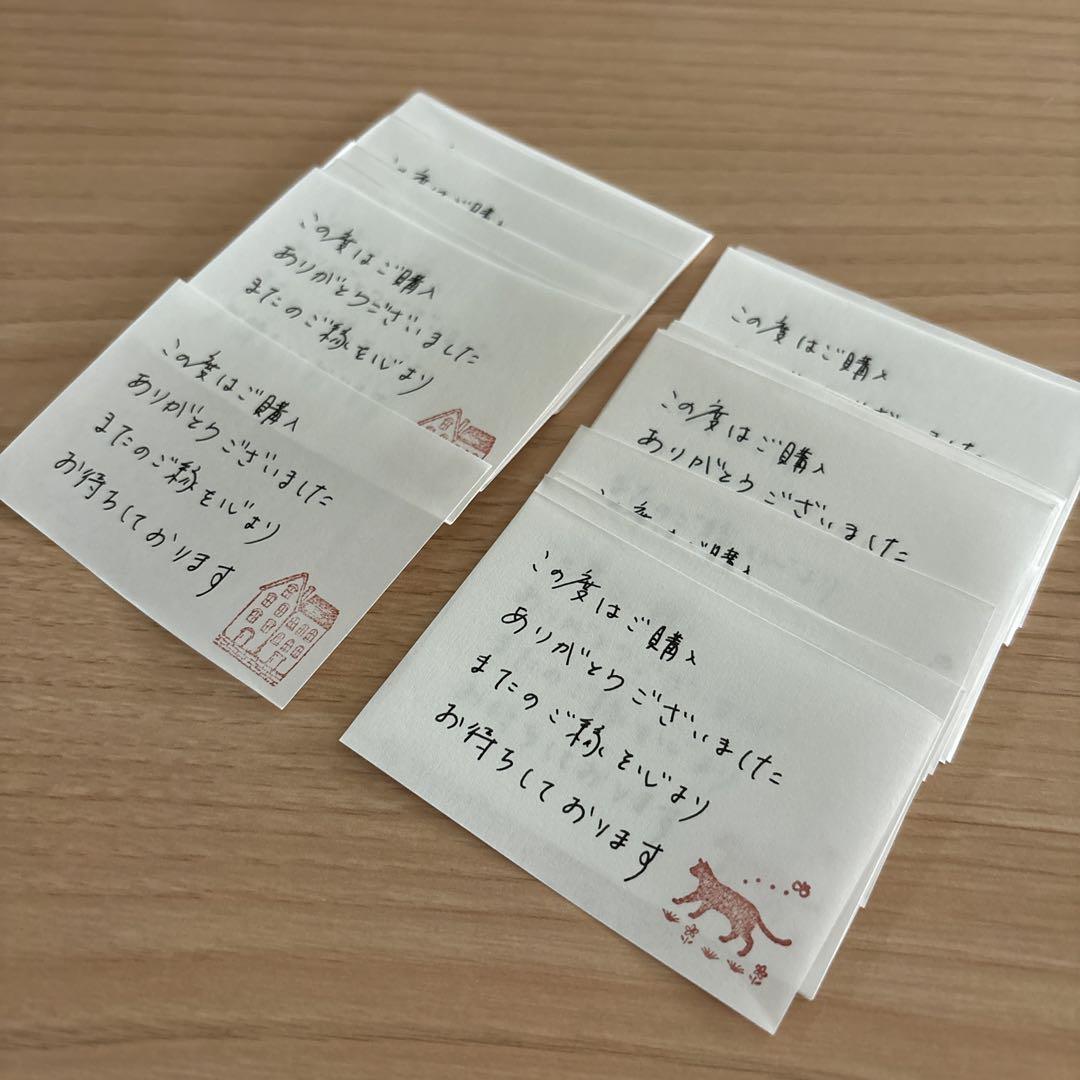 この度はご購入
この度はご購入
ありがとうございました
またのご縁を心より
この度はご購入
ありがとうございました
またのご縁を心より
お待ちしております
この度はご購入
この度はご購入
ありがとうございました
この度はご購入
ありがとうございました
またのご縁を心より
お待ちしております